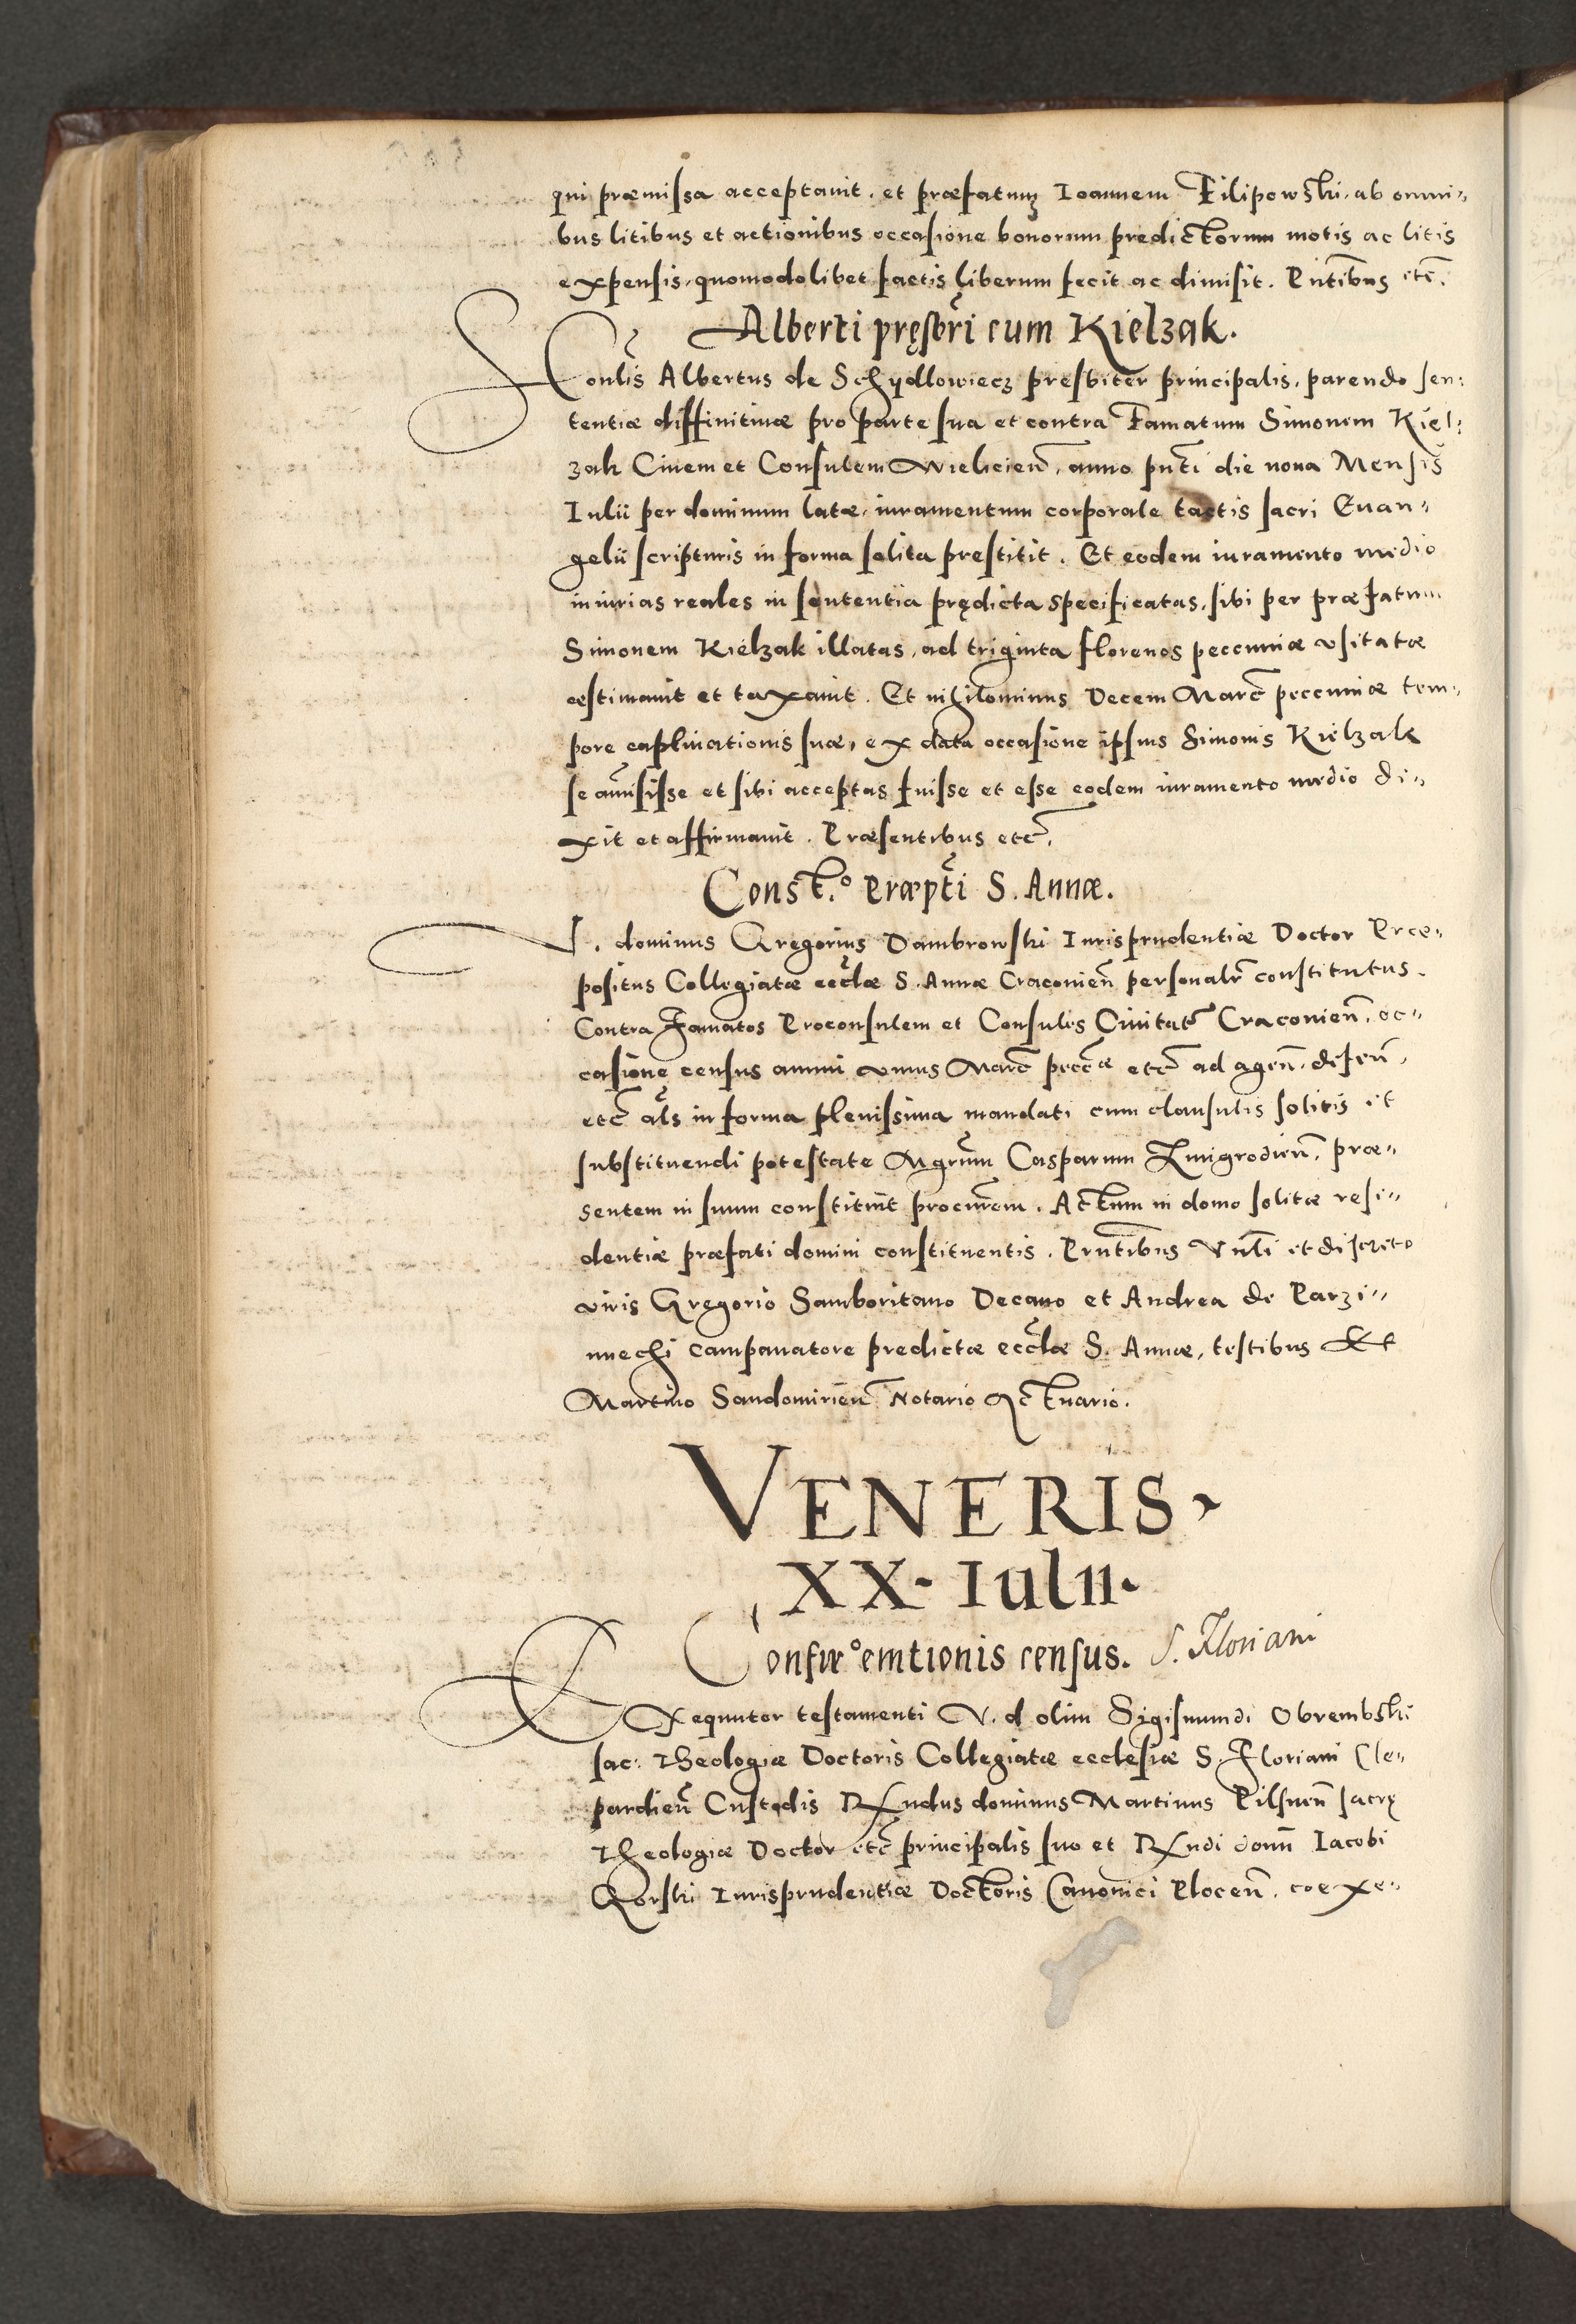 qui præmissa acceptauit. et præfatum Ioannem Filipowski. ab omni„
bus litibus et actionibus occasione bonorum predictorum motis ac litis
expensis. quomodolibet factis liberum fecit ac dimisit. Pntibus etc.
Alberti pręsbri cum Kielzak.
Honlis Albertus de Schydlowiecz presbiter principalis. parendo sen:
tentiæ diffinitiuæ pro parte sua et contra Famatum Simonem Kiel:
zak Ciuem et Consulem Wielicien. anno pnti die nona Mensis
Iulii per dominum latæ. iuramentum corporale tactis sacri Euan„
gelii scripturis in forma solita prestitit. Et eodem iuramento medio
iniurias reales in sententia prędicta specificatas, sibi per præfatum
Simonem Kielzak illatas, ad triginta florenos peccuniæ vsitatæ
æstimauit et taxauit. Et nihilominus Decem Marc peccuniæ tem„
pore captiuationis suæ, ex data occasione ipsius Simonis Kielzak
se amisisse et sibi acceptas fuisse et esse eodem iuramento medio di„
xit et affirmauit. Præsentibus etc.
Const.º Præpti S. Annæ.
V. dominus Gregorius Dambrowski Iurisprudentiæ Doctor Præ„
positus Collegiatæ ecclæ S. Annæ Cracouien personalr constitutus.
Contra Famatos Proconsulem et Consules Ciuitat Cracouien. oc„
casione census annui vnius Marc peccæ etc ad agen. defen.
etc als in forma plenissima mandati cum clausulis solitis et
substituendi potestate Mgrum Casparum Zmigrodien. præ„
sentem in suum constituit procurem. Actum in domo solitæ resi„
dentiæ præfati domini constituentis. Prntibus Vnli et discreto
viris Gregorio Samboritano Decano et Andrea de Parzi„
miechi campanatore predictæ ecclæ S. Annæ, testibus Et
Martino Sandomirien Notario Actuario.
VENERIS.
XX. Iulii.
Confirº emtionis census. S. Floriani
Exequutor testamenti V. d olim Sigismundi Obrembski
sac: Theologiæ Doctoris Collegiatæ ecclesiæ S. Floriani Cle„
pardien Custodis Rndus dominus Martinus Pilsnen sacrę
Theologiæ Doctor etc principalis suo et Rndi domi Iacobi
Gorski Iurisprudentiæ Doctoris Canonici Plocen. coexe„